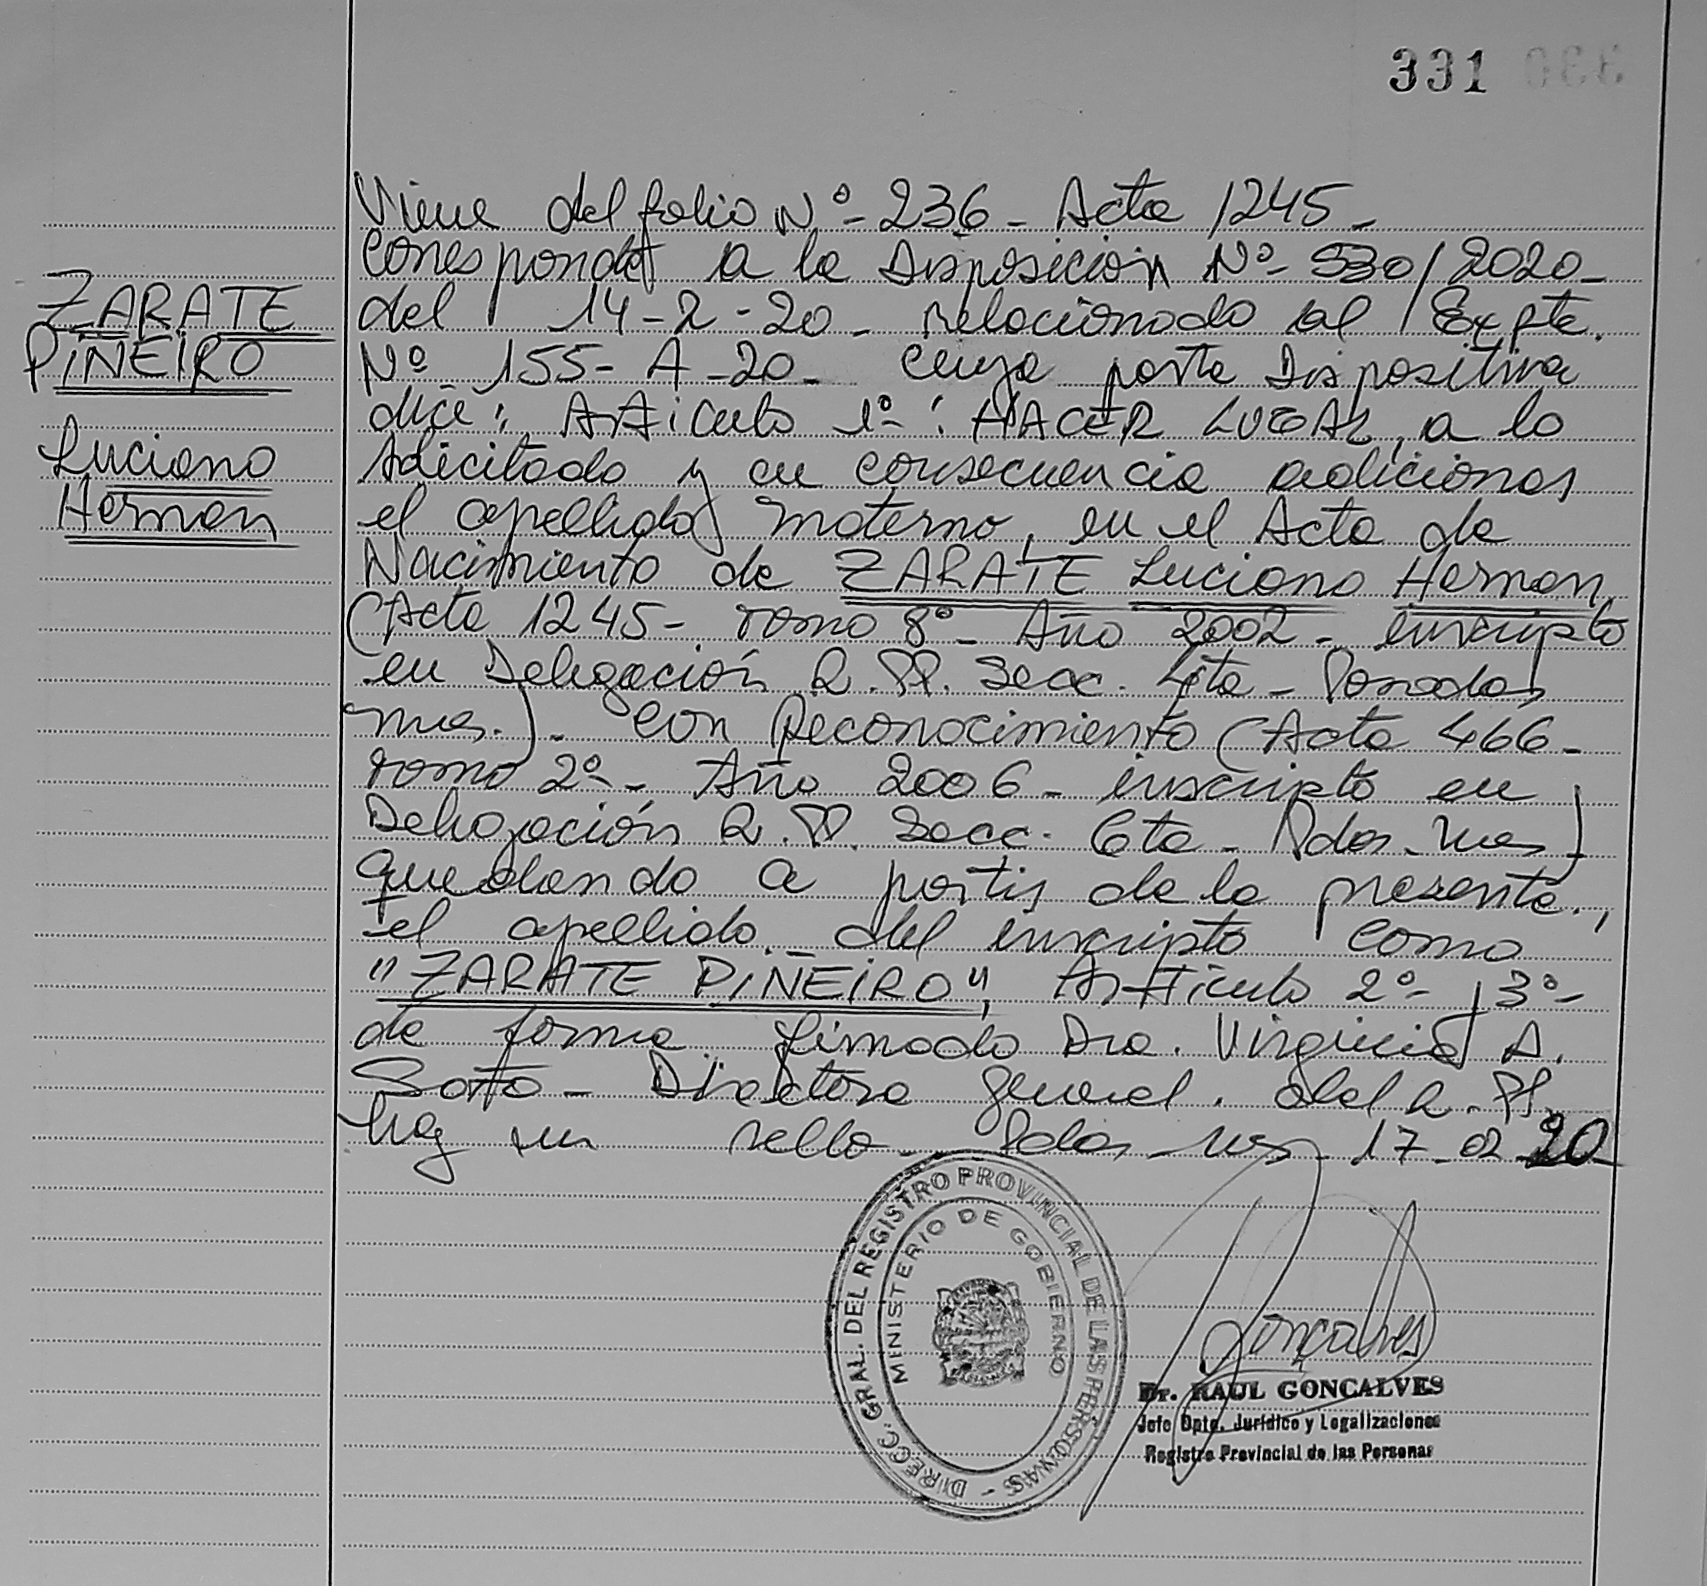 331
ZARATE
PIÑEIRO
Luciano
Hernan
Viene del folio Nº- 236 - Acta 1245 -
Corresponde a la Disposición Nº- 530/2020 -
del 14-2-20 - relacionado al Expte.
Nº 155 - A - 20 - cuya parte Dispositiva
dice: Artículo 1º: HACER LUGAR, a lo
solicitado y en consecuencia adicionar
el apellido materno, en el Acta de
Nacimiento de ZARATE Luciano Hernan
(Acta 1245 - Tomo 8º - Año 2002 - inscripto
en Delegación R.PP. Secc. 4ta - Posadas
mnes.) - con Reconocimiento (Acta 466 -
Tomo 2º - Año 2006 - inscripto en
Delegación R.PP. Secc. 6ta - Pdas. Mnes)
quedando a partir de la presente,
el apellido del inscripto como
"ZARATE PIÑEIRO", Artículo 2º - 3º -
de forma. Firmado Dra. Virginia A.
Directora General del R.PP.
hay un sello - Pdas Mnes 17-02-20
DIRECC. GRAL. DEL REGISTRO PROVINCIAL DE LAS PERSONAS -
MINISTERIO DE GOBIERNO
Goncalves
Dr. RAUL GONCALVES
Jefe Dpto. Jurídico y Legalizaciones
Registro Provincial de las Personas